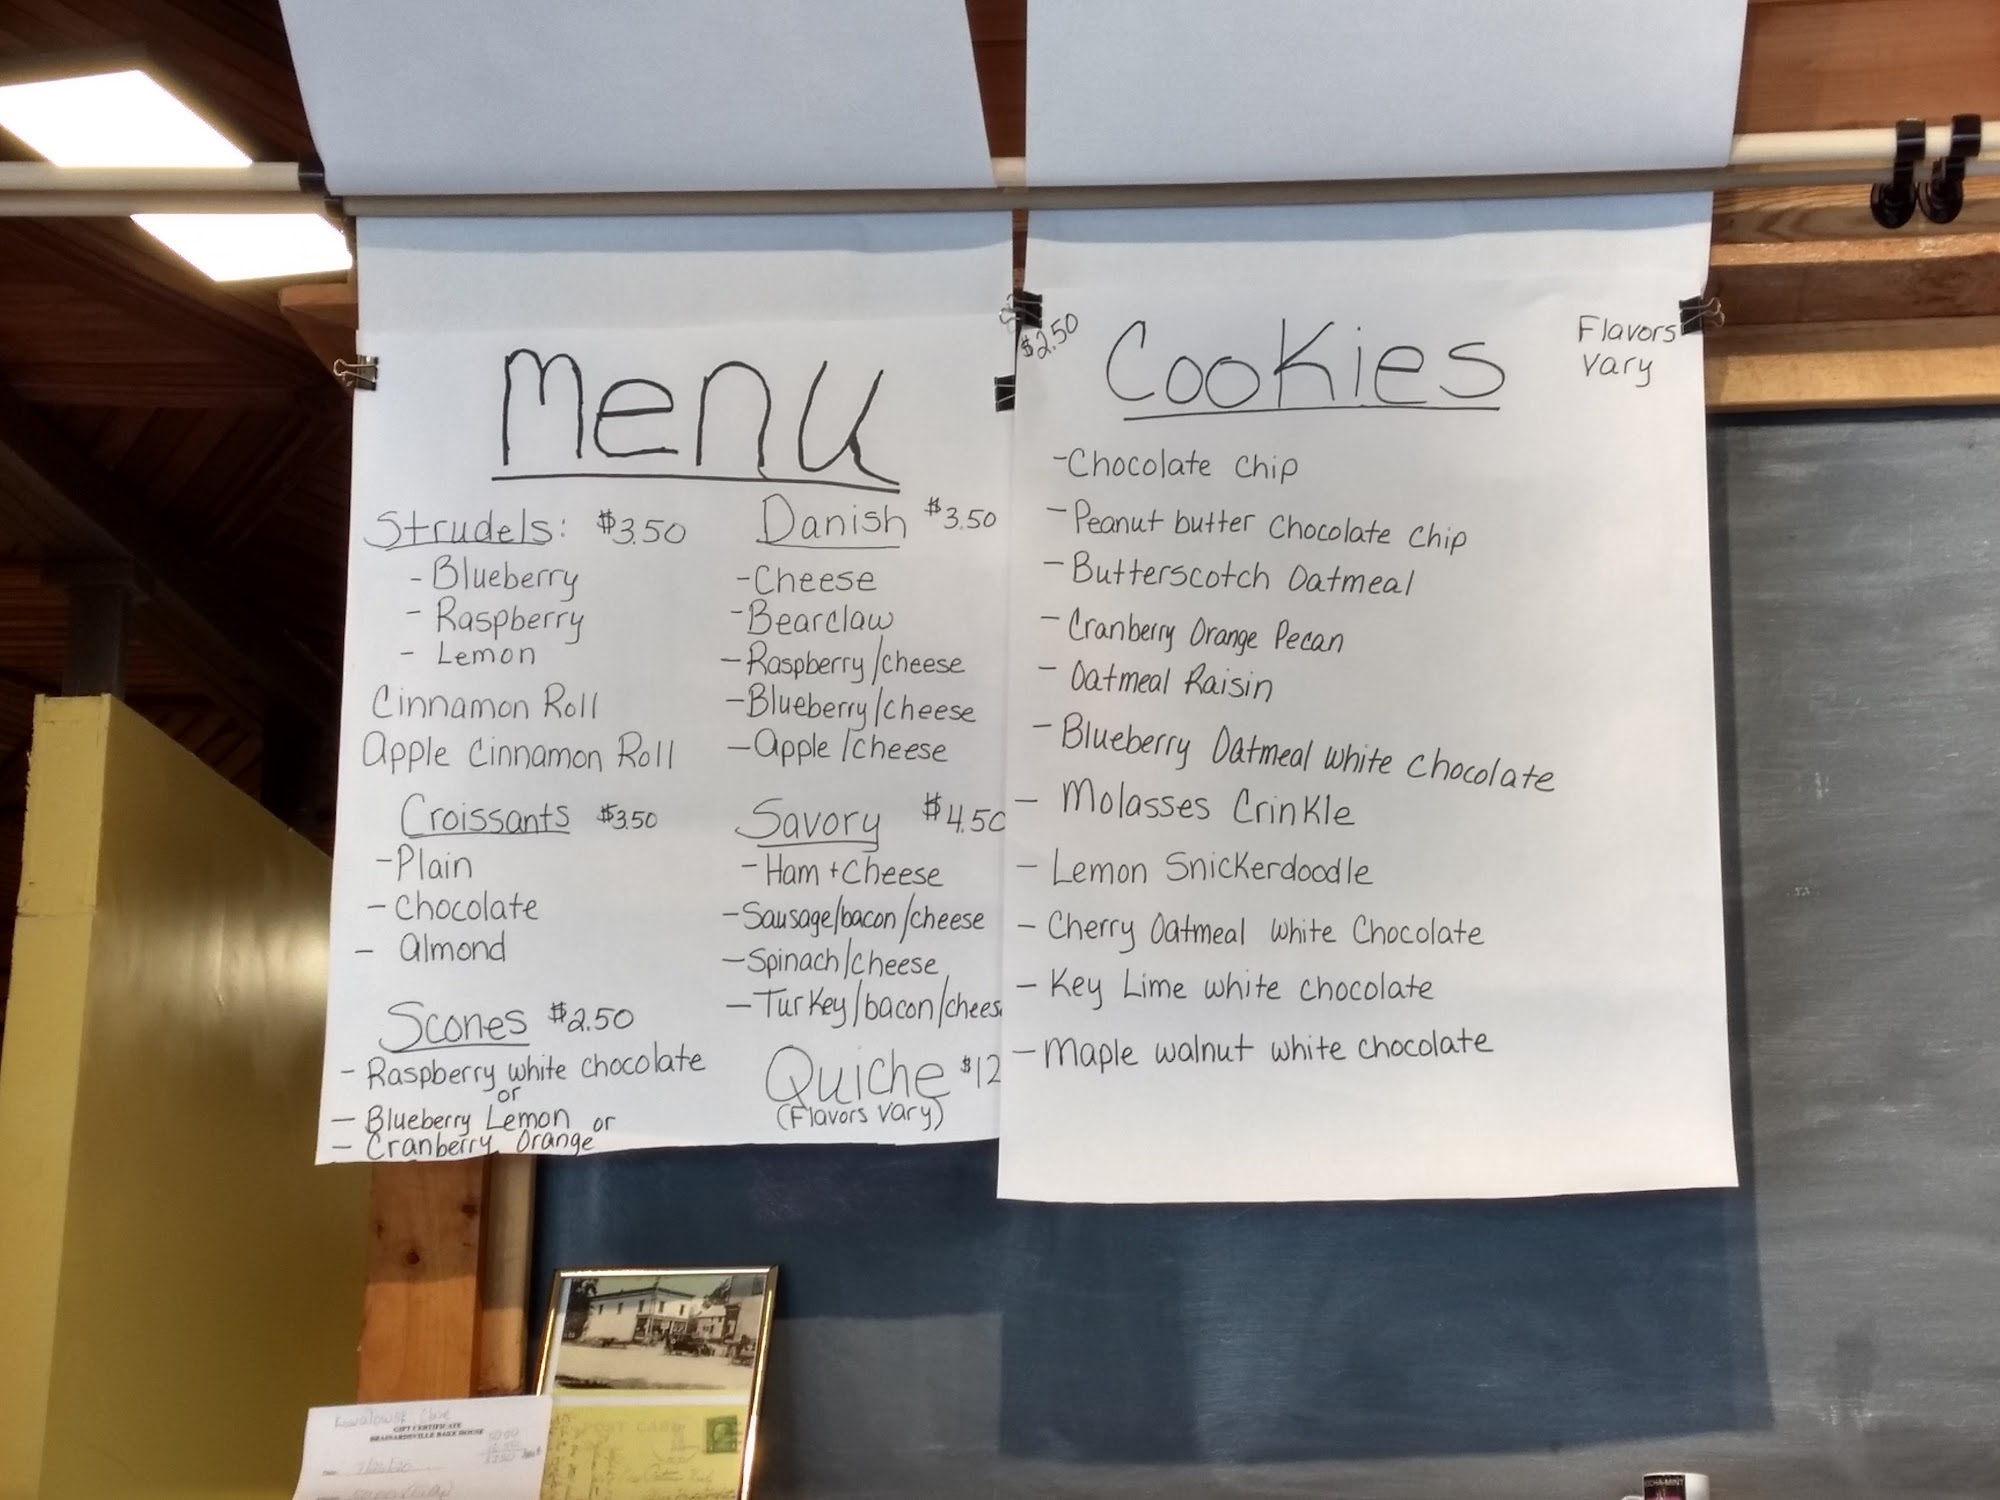 Menu
Strudels: $3.50
- Blueberry
- Raspberry
- Lemon
Cinnamon Roll
Apple Cinnamon Roll
Croissants $3.50
- Plain
- Chocolate
- Almond
Scones $2.50
- Raspberry white chocolate
or
- Blueberry Lemon or
- Cranberry Orange
Danish $3.50
- Cheese
- Bearclaw
- Raspberry/cheese
- Blueberry/cheese
- Apple/cheese
Savory $4.50
- Ham + Cheese
- Sausage/bacon/cheese
- Spinach/cheese
- Turkey/bacon/chees
Quiche $12
(Flavors vary)
$2.50
Cookies
Flavors
vary
- Chocolate Chip
- Peanut butter Chocolate Chip
- Butterscotch Oatmeal
- Cranberry Orange Pecan
- Oatmeal Raisin
- Blueberry Oatmeal white Chocolate
- Molasses Crinkle
- Lemon Snickerdoodle
- Cherry Oatmeal white Chocolate
- Key Lime white chocolate
- Maple walnut white chocolate
GIFT CERTIFICATE
BRAINARDSVILLE BAKE HOUSE
POST CARD